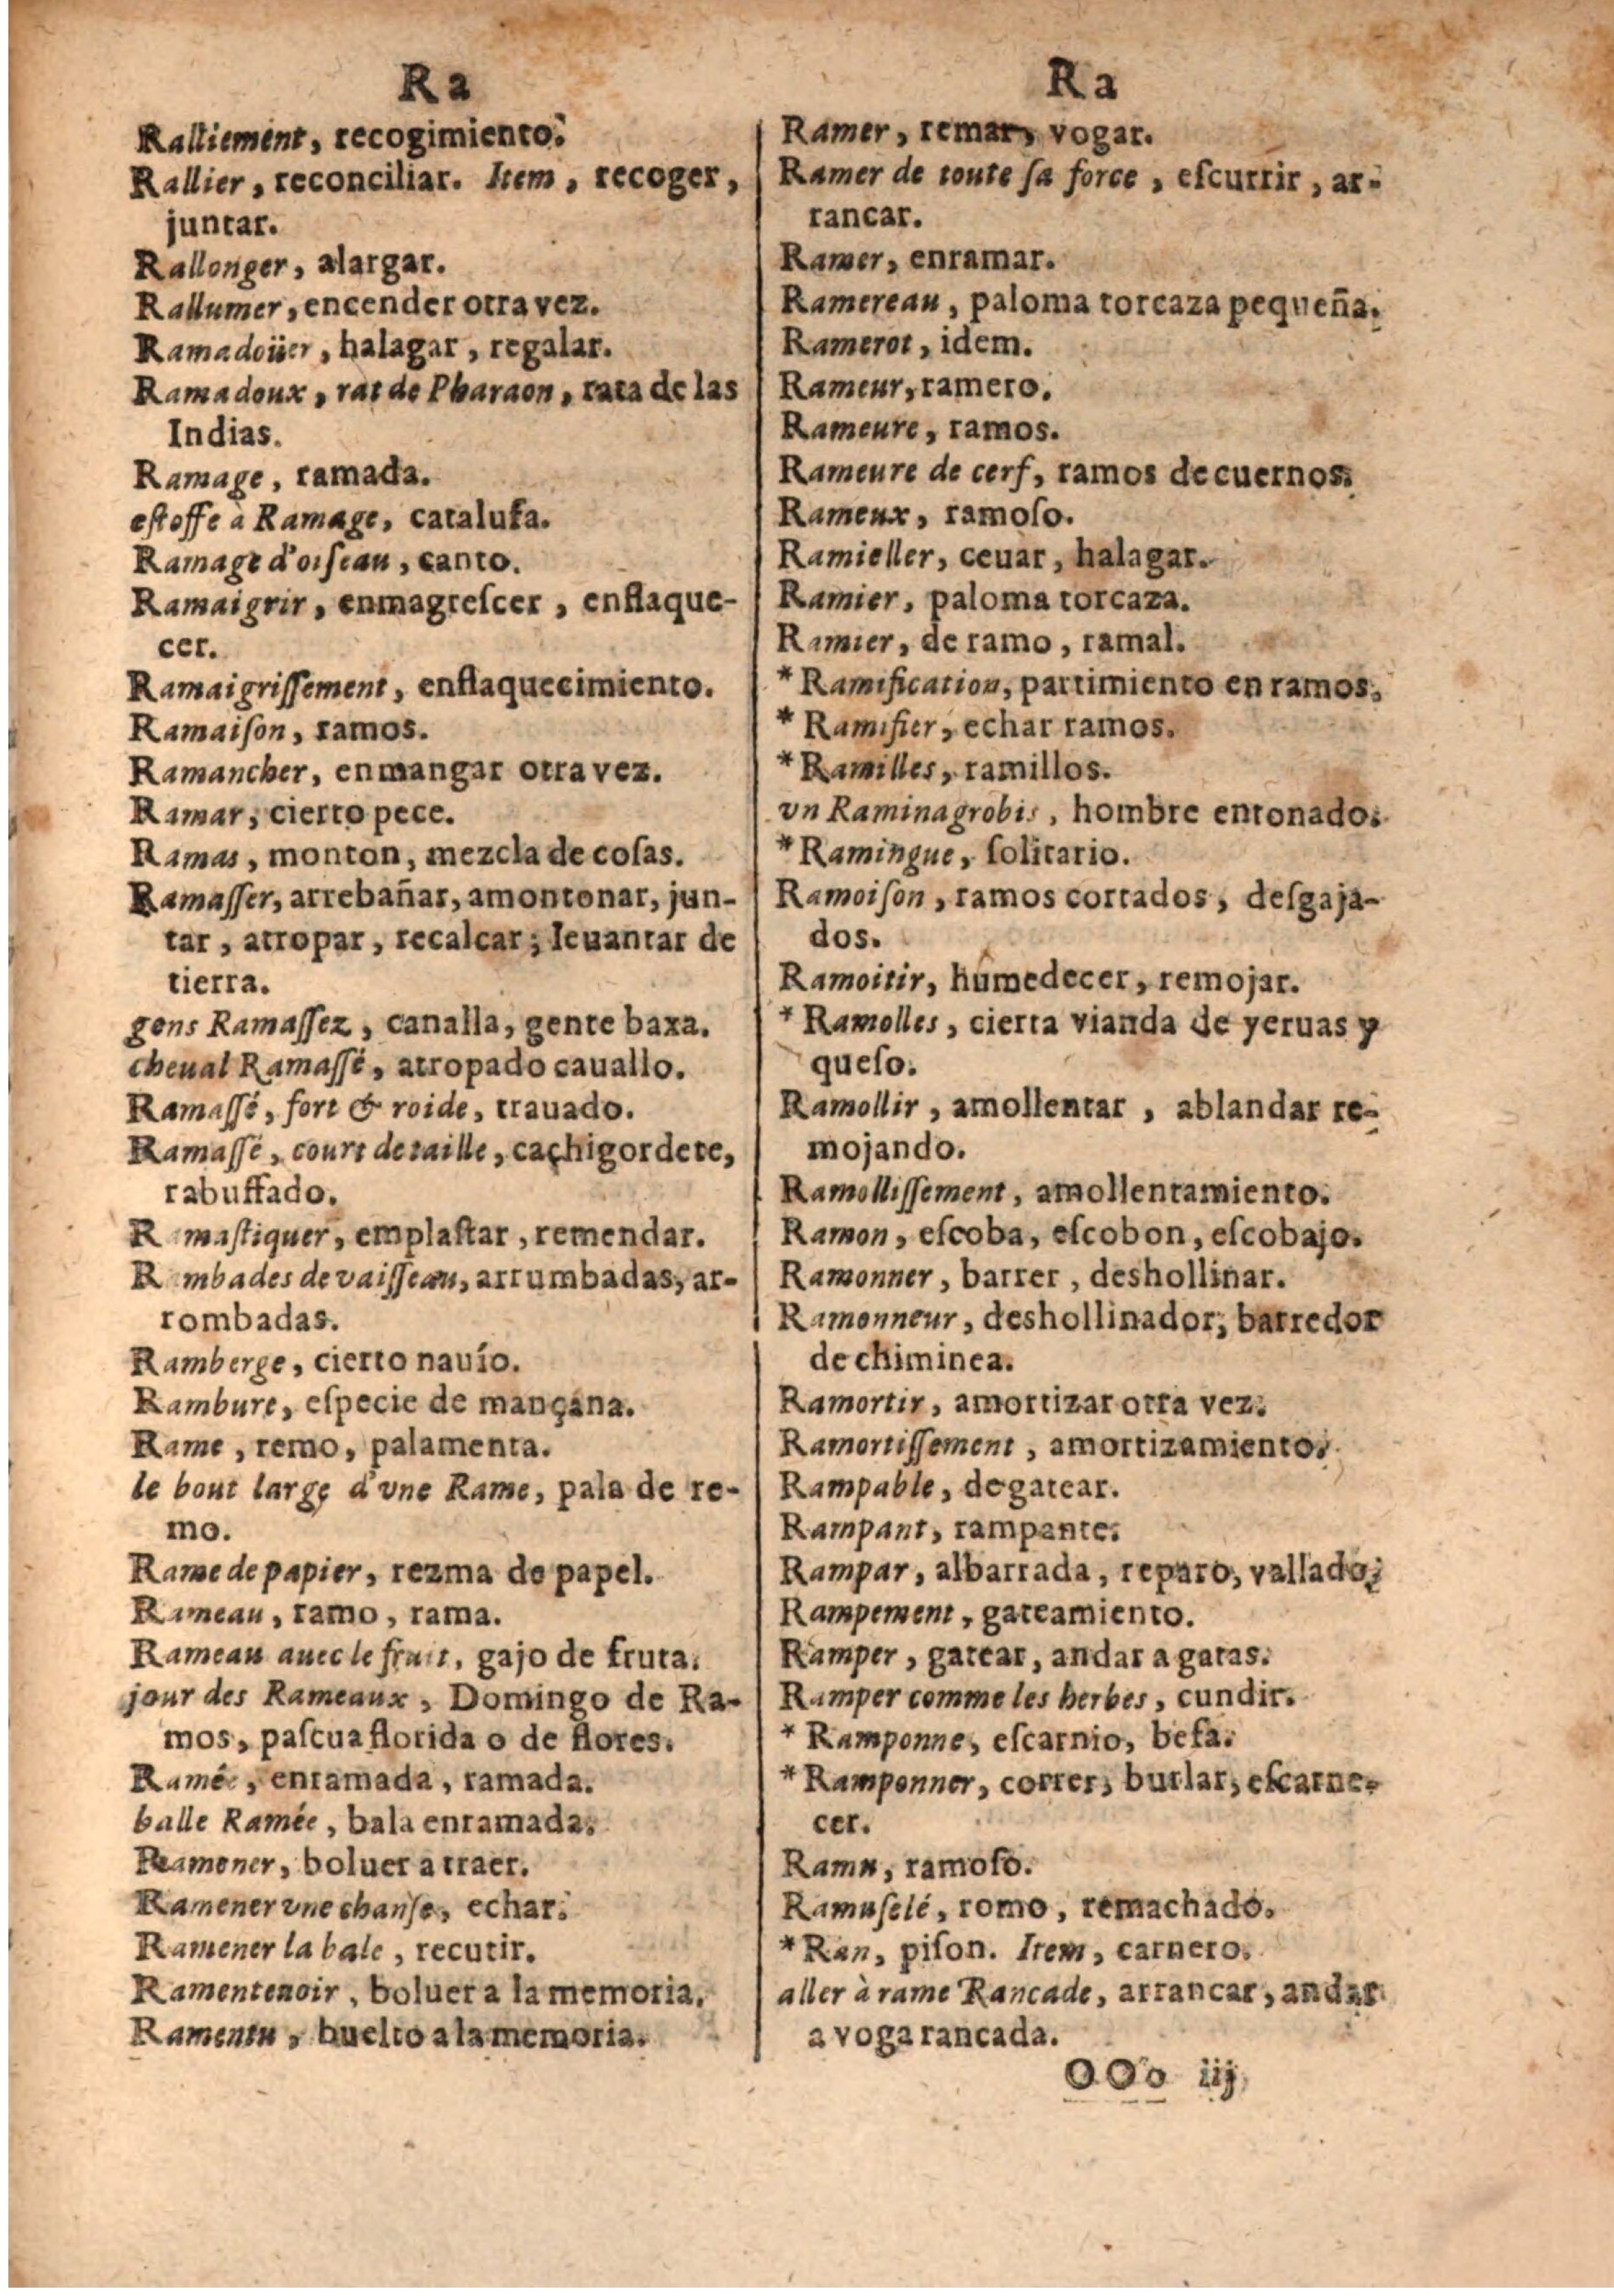 Ra
Ralliement, recogimiento.
Rallier, reconciliar. Item, recoger,
juntar.
Rallonger, alargar.
Rallumer, encender otra vez.
Ramadoüer, halagar, regalar.
Ramadoux, rat de Pharaon, rata de las
Indias.
Ramage, ramada.
eſtoffe à Ramage, catalufa.
Ramage d'oiſeau, canto.
Ramaigrir, enmagreſcer, enflaque-
cer.
Ramaigriſſement, enflaquecimiento.
Ramaiſon, ramos.
Ramancher, enmangar otra vez.
Ramar, cierto pece.
Ramas, monton, mezcla de coſas.
Ramaſſer, arrebañar, amontonar, jun-
tar, atropar, recalcar; leuantar de
tierra.
gens Ramaſſez, canalla, gente baxa.
cheual Ramaſſé, atropado cauallo.
Ramaſſé, fort & roide, trauado.
Ramaſſé, court de taille, caçhigordete,
rabuffado.
Ramaſtiquer, emplaſtar, remendar.
Rambades de vaiſſeau, arrumbadas, ar-
rombadas.
Ramberge, cierto nauío.
Rambure, eſpecie de mançana.
Rame, remo, palamenta.
le bout large d'vne Rame, pala de re-
mo.
Rame de papier, rezma de papel.
Rameau, ramo, rama.
Rameau auec le fruit, gajo de fruta.
jour des Rameaux, Domingo de Ra-
mos, paſcua florida o de flores.
Ramée, enramada, ramada.
balle Ramée, bala enramada.
Ramener, boluer a traer.
Ramener vne chanſe, echar.
Ramener la bale, recutir.
Ramenteuoir, boluer a la memoria.
Ramentu, buelto a la memoria.
Ra
Ramer, remar, vogar.
Ramer de toute ſa force, eſcurrir, ar-
rancar.
Ramer, enramar.
Ramereau, paloma torcaza pequeña.
Ramerot, idem.
Rameur, ramero.
Rameure, ramos.
Rameure de cerf, ramos de cuernos.
Rameux, ramoſo.
Ramieller, ceuar, halagar.
Ramier, paloma torcaza.
Ramier, de ramo, ramal.
*Ramification, partimiento en ramos.
*Ramifier, echar ramos.
*Ramilles, ramillos.
vn Raminagrobis, hombre entonado.
*Ramingue, ſolitario.
Ramoiſon, ramos cortados, deſgaja-
dos.
Ramoitir, húmedecer, remojar.
*Ramolles, cierta vianda de yeruas y
queſo.
Ramollir, amollentar, ablandar re-
mojando.
Ramolliſſement, amollentamiento.
Ramon, eſcoba, eſcobon, eſcobajo.
Ramonner, barrer, deshollinar.
Ramonneur, deshollinador, barredor
de chiminea.
Ramortir, amortizar otra vez.
Ramortiſſement, amortizamiento.
Rampable, de gatear.
Rampant, rampante.
Rampar, albarrada, reparo, vallado.
Rampement, gateamiento.
Ramper, gatear, andar a gatas.
Ramper comme les herbes, cundir.
*Ramponne, eſcarnio, befa.
*Ramponner, correr, burlar, eſcarne-
cer.
Ramu, ramoſo.
Ramuſelé, romo, remachado.
*Ran, piſon. Item, carnero.
aller à rame Rancade, arrancar, andar
a voga rancada.
OOo iij